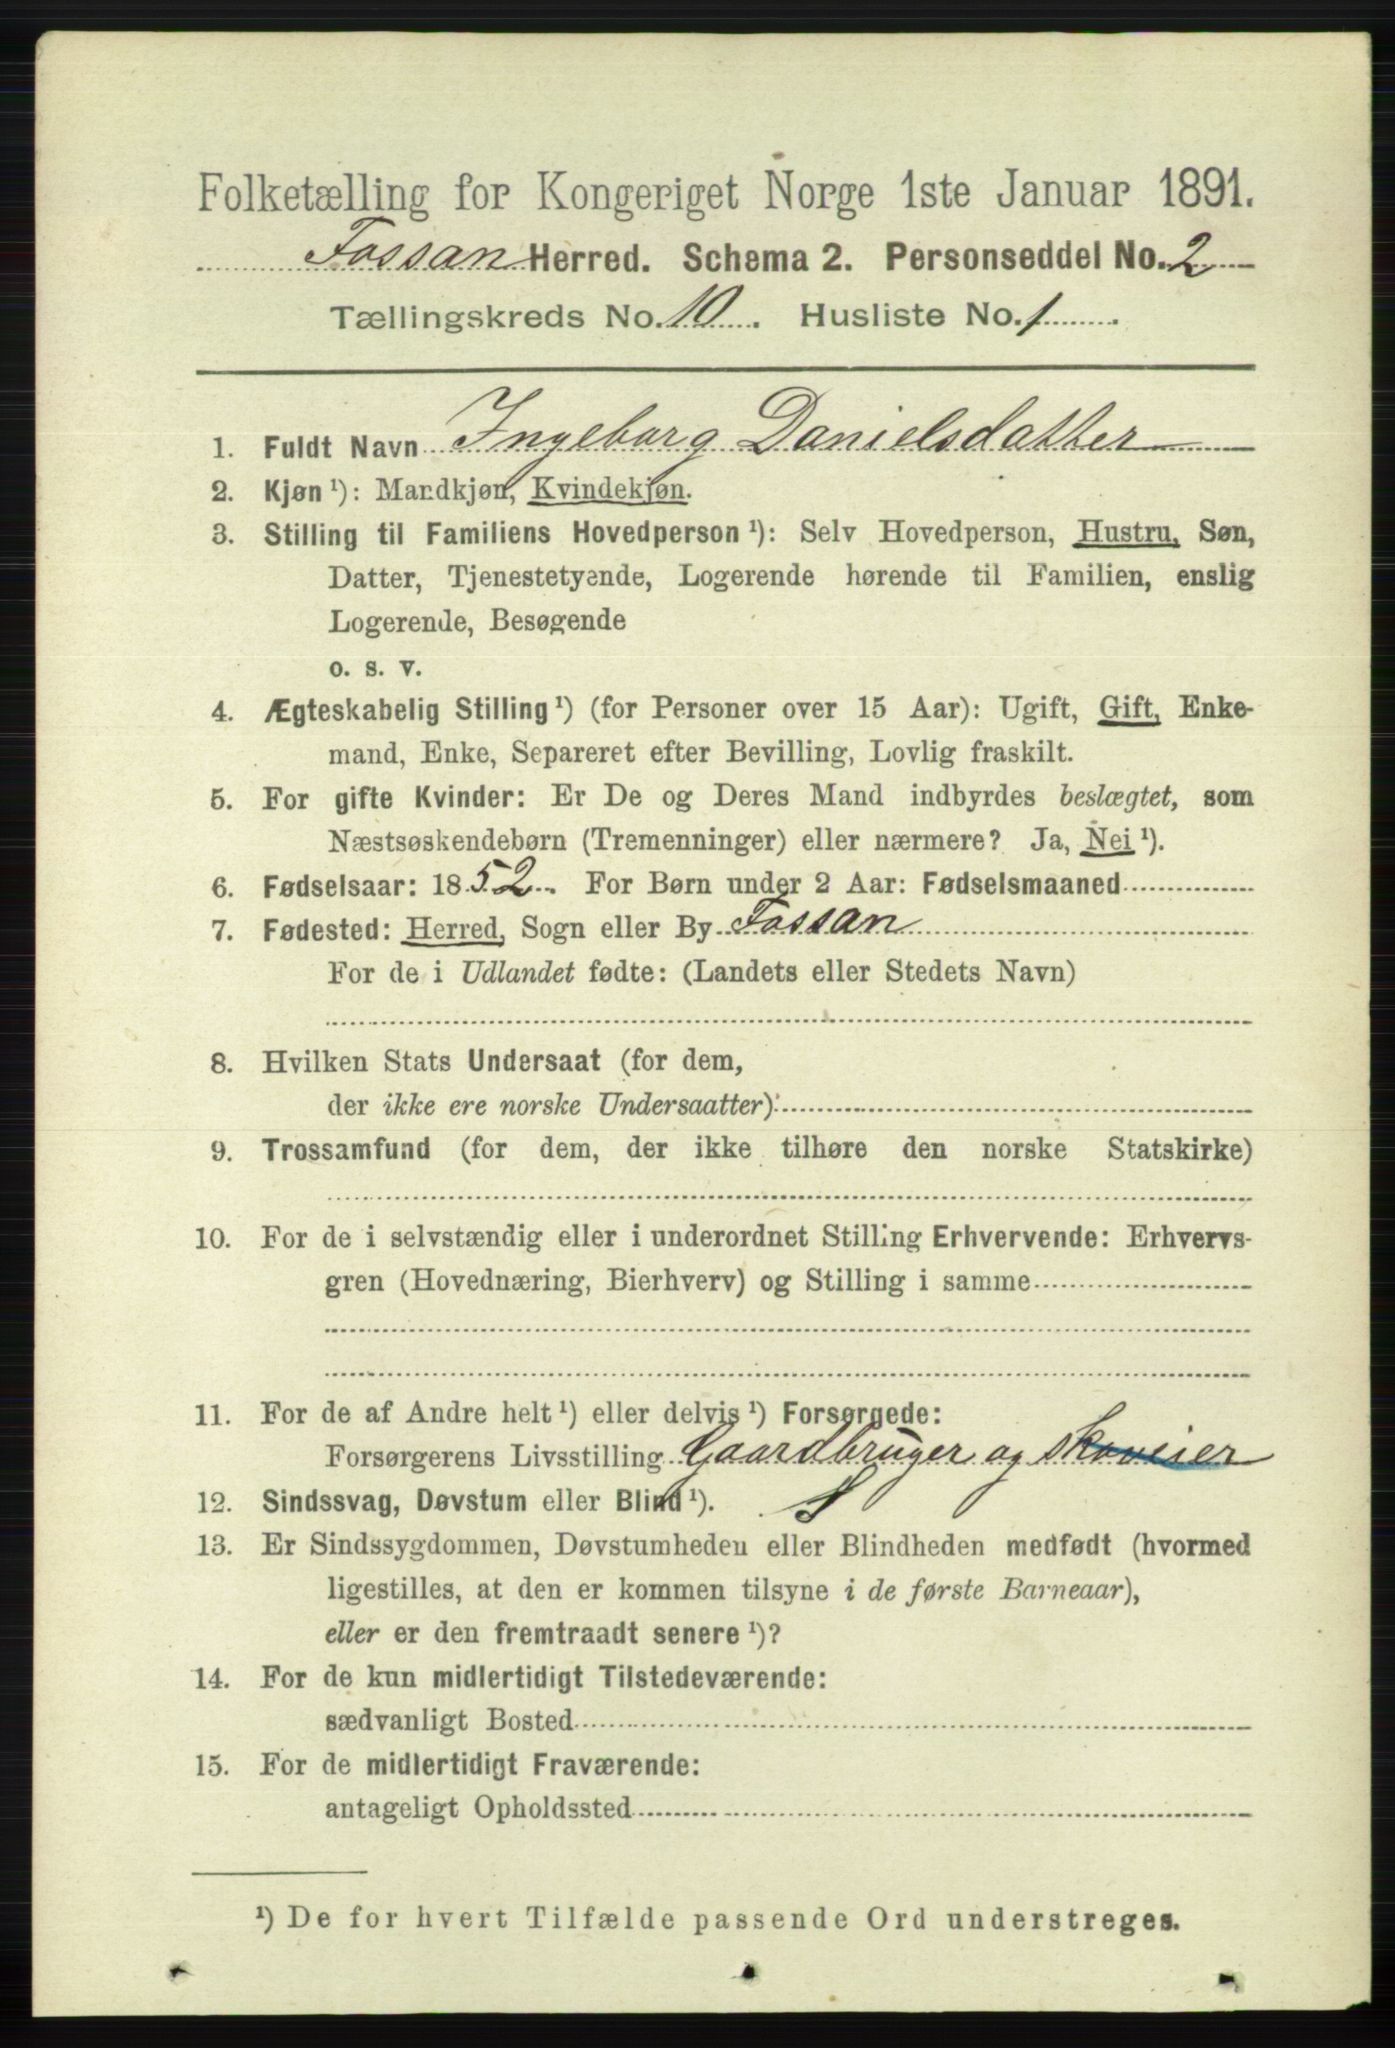 Folketælling for Kongeriget Norge 1ste Januar 1891.
Fossan Herred. Schema 2. Personseddel No. 2
Tællingskreds No. 10. Husliste No. 1
1. Fuldt Navn Ingeborg Danielsdatter
2. Kjøn ¹): Mandkjøn, Kvindekjøn.
3. Stilling til Familiens Hovedperson ¹): Selv Hovedperson, Hustru, Søn,
Datter, Tjenestetyende, Logerende hørende til Familien, enslig
Logerende, Besøgende
o. s. v.
4. Ægteskabelig Stilling ¹) (for Personer over 15 Aar): Ugift, Gift, Enke-
mand, Enke, Separeret efter Bevilling, Lovlig fraskilt.
5. For gifte Kvinder: Er De og Deres Mand indbyrdes beslægtet, som
Næstsøskendebørn (Tremenninger) eller nærmere? Ja, Nei ¹).
6. Fødselsaar: 1852. For Børn under 2 Aar: Fødselsmaaned
7. Fødested: Herred, Sogn eller By Fossan
For de i Udlandet fødte: (Landets eller Stedets Navn)
8. Hvilken Stats Undersaat (for dem,
der ikke ere norske Undersaatter):
9. Trossamfund (for dem, der ikke tilhøre den norske Statskirke)
10. For de i selvstændig eller i underordnet Stilling Erhvervende: Erhvervs-
gren (Hovednæring, Bierhverv) og Stilling i samme
11. For de af Andre helt ¹) eller delvis ¹) Forsørgede:
Forsørgerens Livsstilling Gaardbruger og skoveier
12. Sindssvag, Døvstum eller Blind ¹).
13. Er Sindssygdommen, Døvstumheden eller Blindheden medfødt (hvormed
ligestilles, at den er kommen tilsyne i de første Barneaar),
eller er den fremtraadt senere ¹)?
14. For de kun midlertidigt Tilstedeværende:
sædvanligt Bosted
15. For de midlertidigt Fraværende:
antageligt Opholdssted
¹) De for hvert Tilfælde passende Ord understreges.